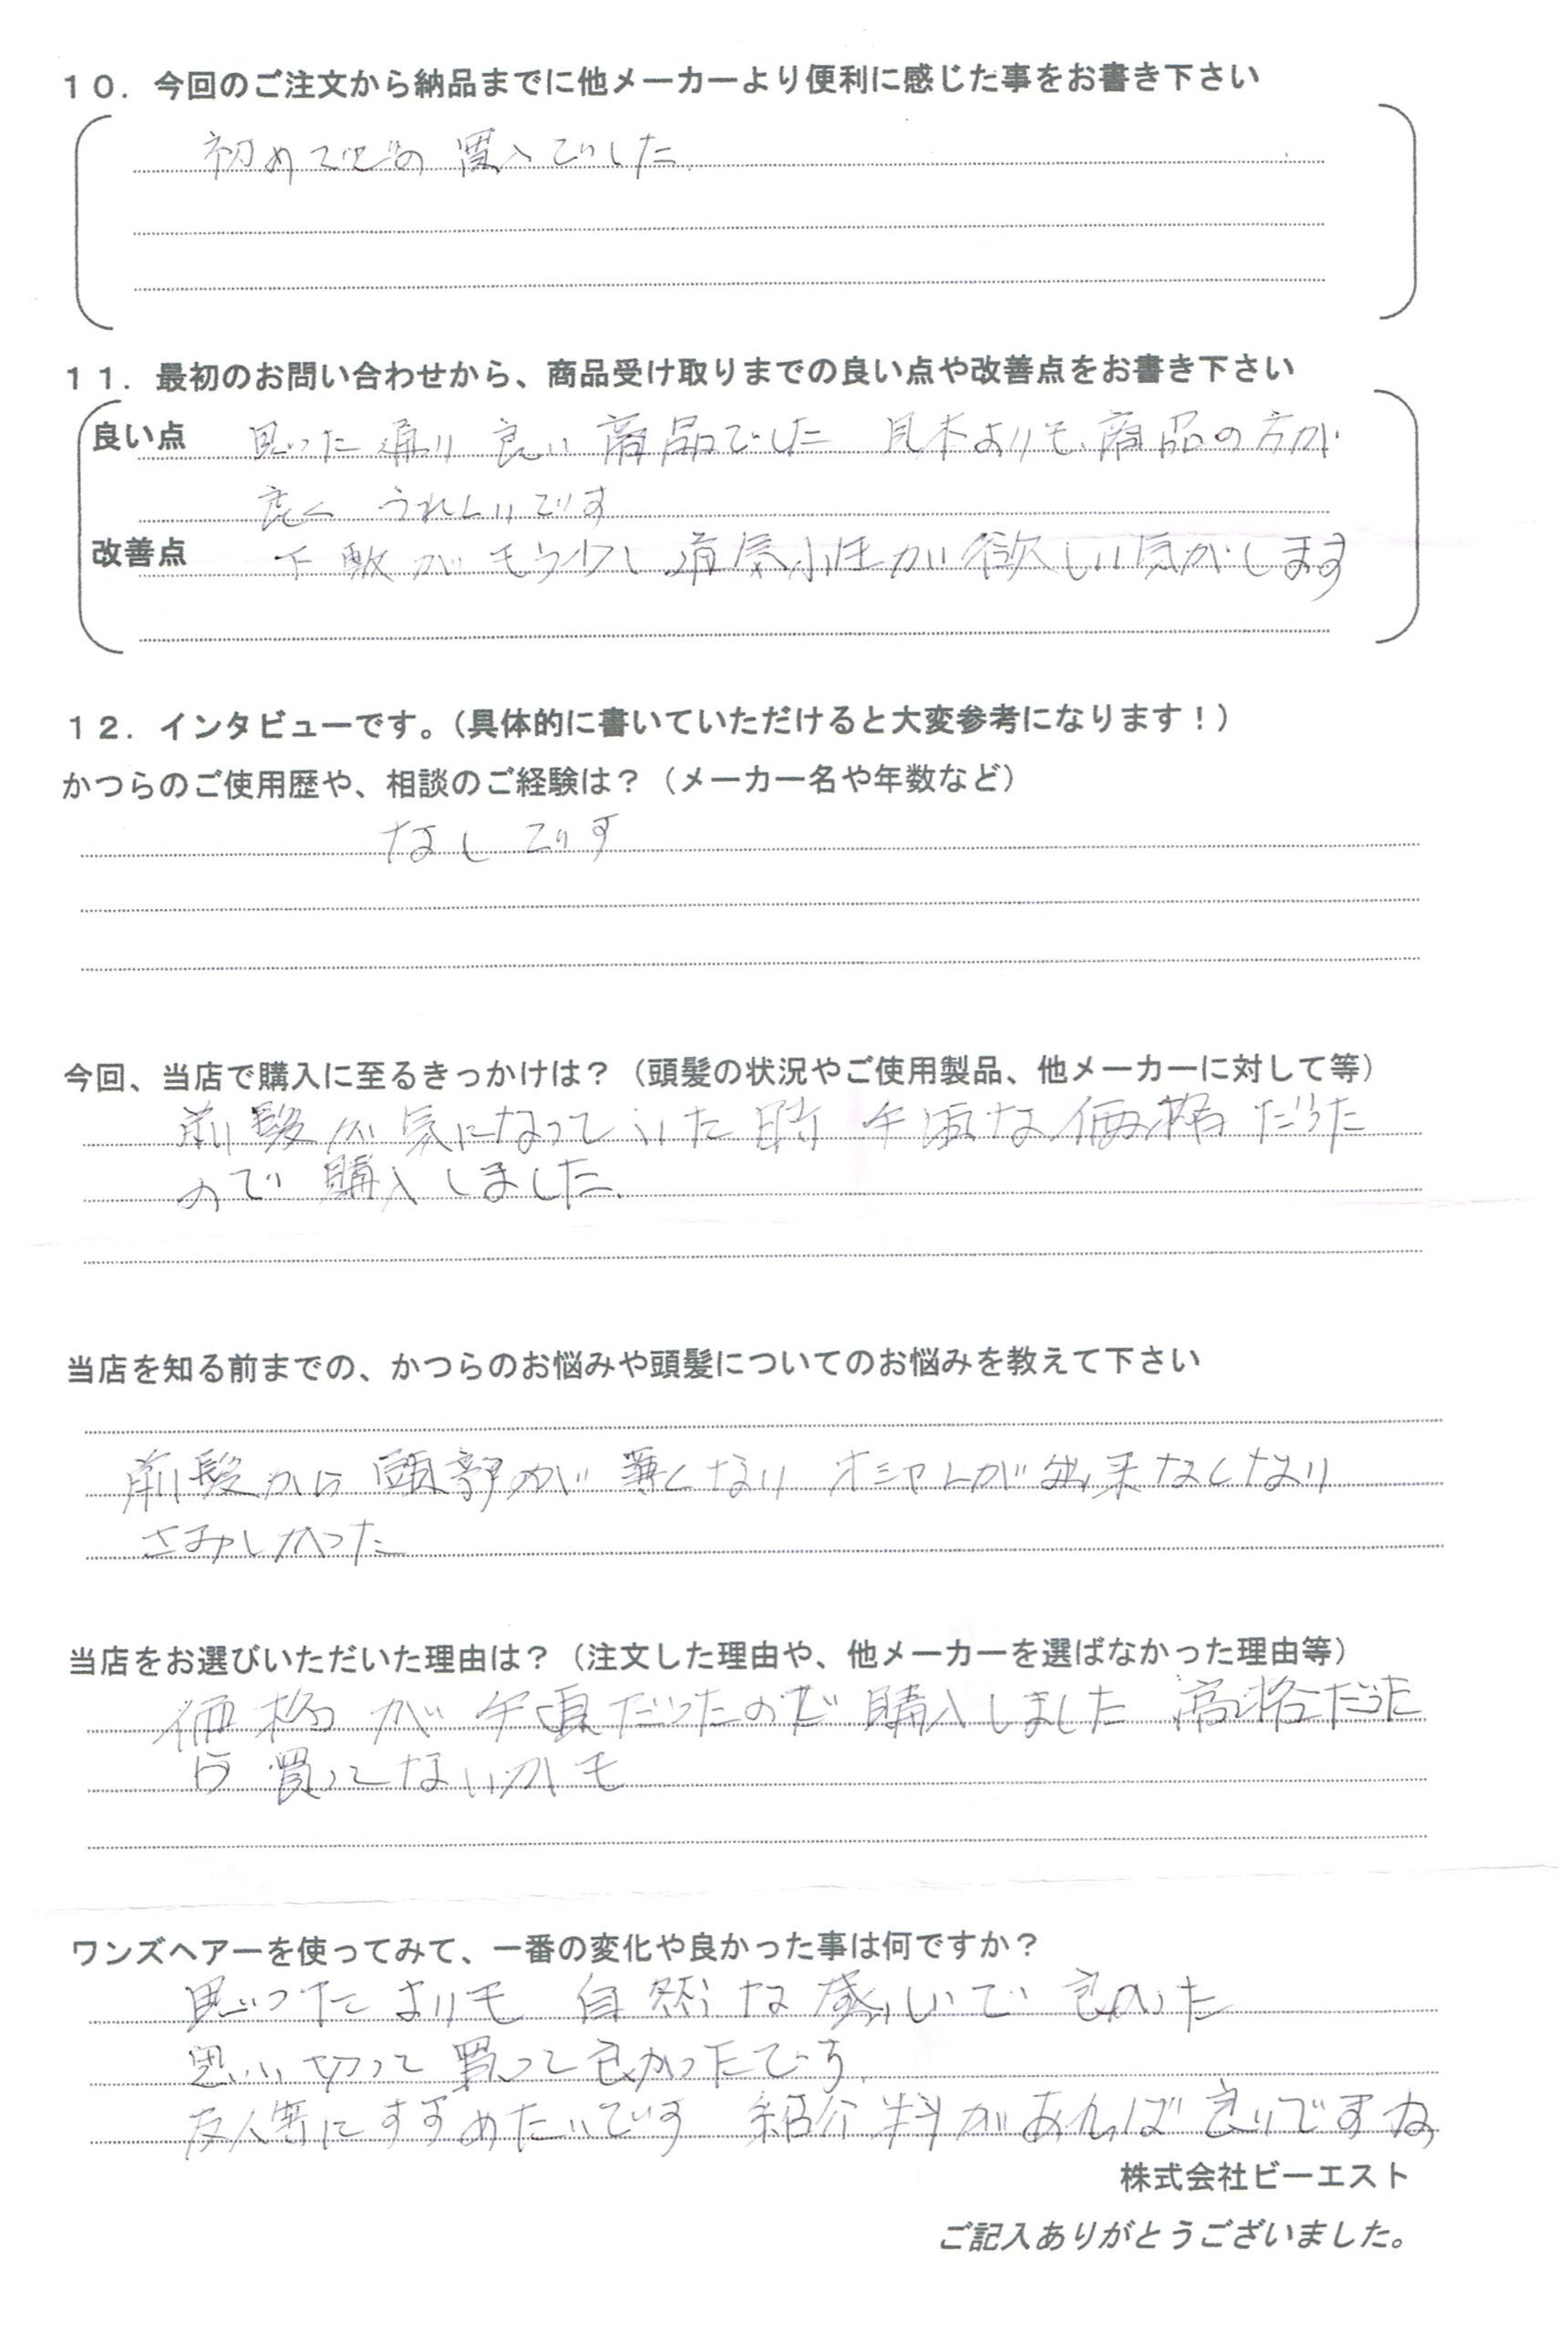 10. 今回のご注文から納品までに他メーカーより便利に感じた事をお書き下さい
初めての買入でした
11. 最初のお問い合わせから、商品受け取りまでの良い点や改善点をお書き下さい
良い点 思った通り良い商品でした 見本よりも商品の方が
良く うれしいです
改善点 下敷がもう少し通気性が欲しい気がします
12. インタビューです。(具体的に書いていただけると大変参考になります!)
かつらのご使用歴や、相談のご経験は?(メーカー名や年数など)
なしです
今回、当店で購入に至るきっかけは?(頭髪の状況やご使用製品、他メーカーに対して等)
前髪が気になっていた時 手頃な価格だった
ので購入しました.
当店を知る前までの、かつらのお悩みや頭髪についてのお悩みを教えて下さい
前髪から頭部が薄くなり オシャレが出来なくなり
さみしかった
当店をお選びいただいた理由は?(注文した理由や、他メーカーを選ばなかった理由等)
価格が手頃だったので購入しました 高格だった
ら買ってないかも
ワンズヘアーを使ってみて、一番の変化や良かった事は何ですか?
思ったよりも自然な感じで良かった
思い切って買って良かったです.
友人等にすすめたいです 紹介料があれば良いですね
株式会社ビーエスト
ご記入ありがとうございました。